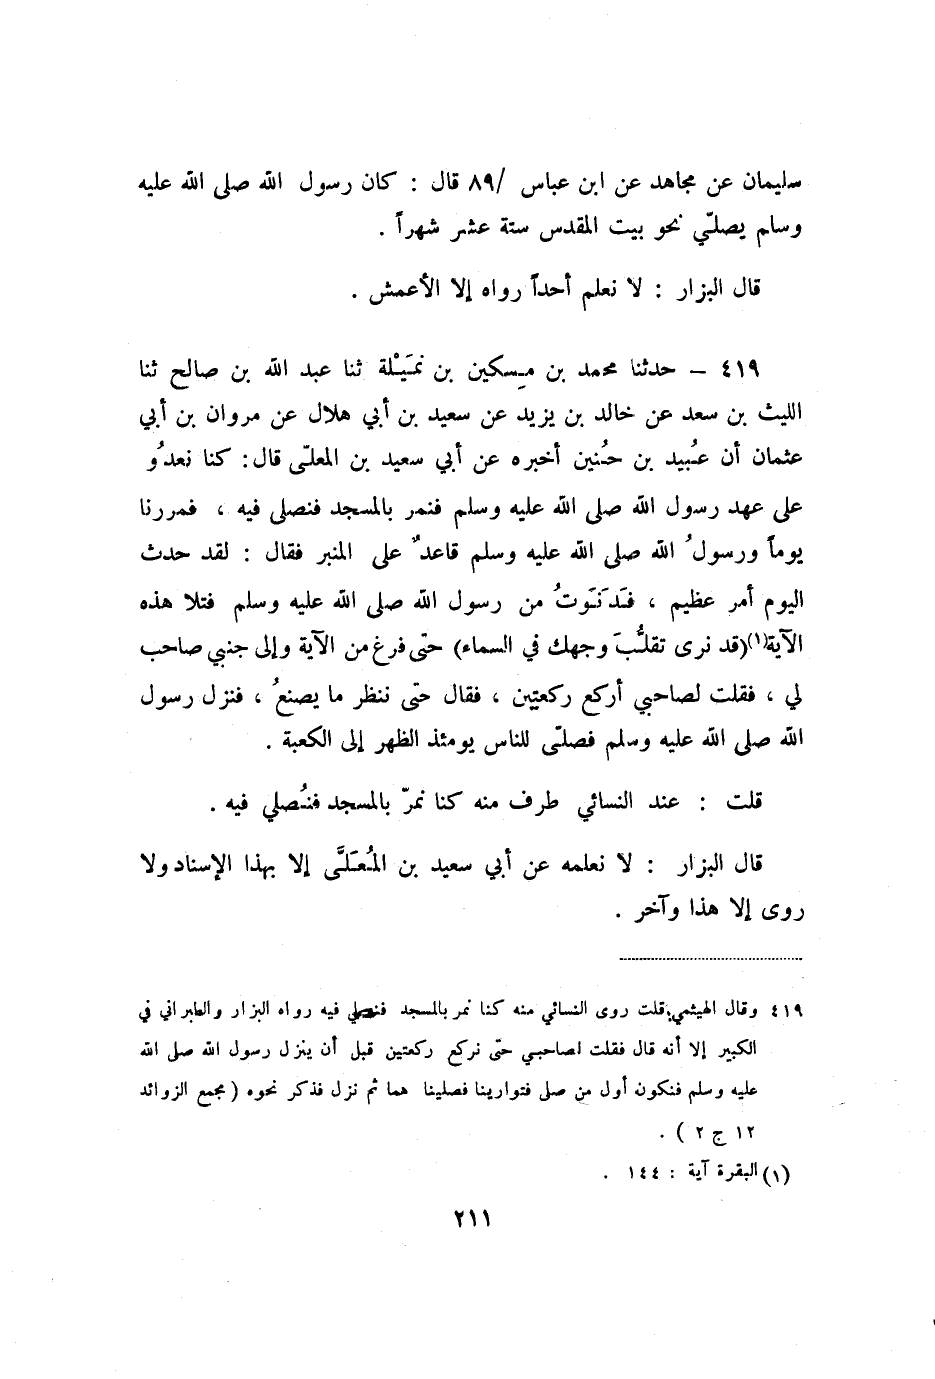 سليمان عن مجاهد عن ابن عباس /٨٩ قال : كان رسول الله صلى الله عليه
وسلم يصلّي نحو بيت المقدس ستة عشر شهراً .
قال البزار : لا نعلم أحداً رواه إلا الأعمش .
٤١٩ – حدثنا محمد بن مِسكين بن نُمَيْلة ثنا عبد الله بن صالح ثنا
الليث بن سعد عن خالد بن يزيد عن سعيد بن أبي هلال عن مروان بن أبي
عثمان أن عُبيد بن حُنين أخبره عن أبي سعيد بن المعلّى قال : كنا نعدُو
على عهد رسول الله صلى الله عليه وسلم فنمر بالمسجد فنصلي فيه ، فمررنا
يوماً ورسولُ الله صلى الله عليه وسلم قاعدٌ على المنبر فقال : لقد حدث
اليوم أمر عظيم ، فَدَنَوتُ من رسول الله صلى الله عليه وسلم فتلا هذه
الآية(١)(قد نرى تقلُّبَ وجهك في السماء) حتى فرغ من الآية وإلى جنبي صاحب
لي ، فقلت لصاحبي أركع ركعتين ، فقال حتى ننظر ما يصنعُ ، فنزل رسول
الله صلى الله عليه وسلم فصلّى للناس يومئذ الظهر إلى الكعبة .
قلت : عند النسائي طرف منه كنا نمرّ بالمسجد فنُصلي فيه .
قال البزار : لا نعلمه عن أبي سعيد بن المُعَلَّى إلا بهذا الإسناد ولا
روى إلا هذا وآخر .
٤١٩ وقال الهيثمي: قلت روى النسائي منه كنا نمر بالمسجد فنصلي فيه رواه البزار والطبراني في
الكبير إلا أنه قال فقلت لصاحبي حتى نركع ركعتين قبل أن ينزل رسول الله صلى الله
عليه وسلم فنكون أول من صلى فتوارينا فصلينا هما ثم نزل فذكر نحوه ( مجمع الزوائد
١٢ ج ٢ ) .
(١) البقرة آية : ١٤٤ .
٢١١